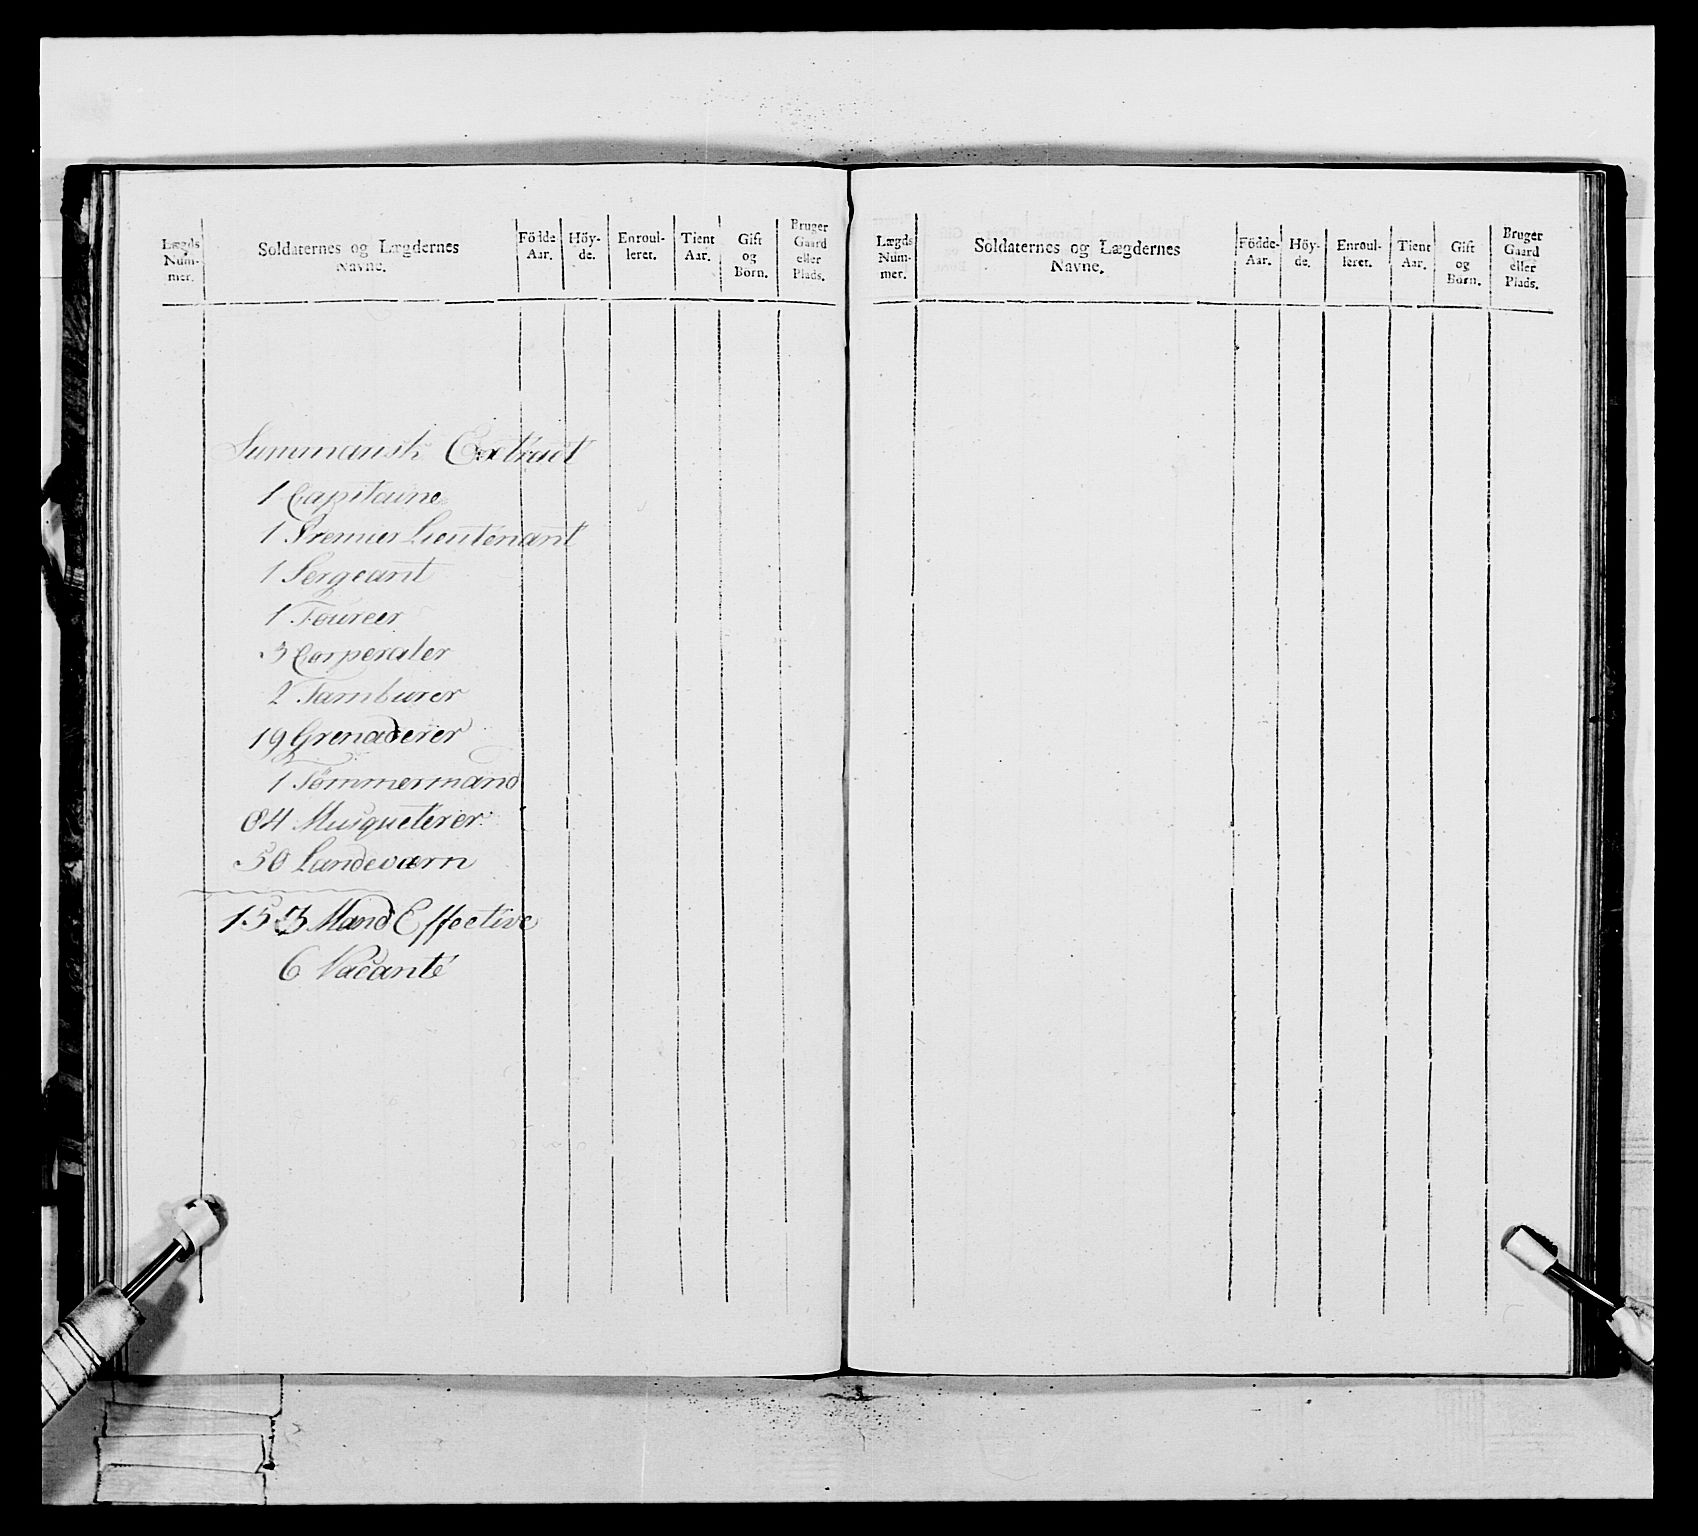 Lægds Num- mer.
Soldaternes og Lægdernes Navne.
Födde Aar.
Höy- de.
Enroul- leret.
Tient Aar.
Gift og Börn.
Bruger Gaard eller Plads.
Summarisk Extract
1 Capitaine
1 Premier Lieutenant
1 Sergeant
1 Foureer
3 Corperaler
2 Tamburer
19 Grenaderer
1 Tømmermand
84 Musqueterer
50 Landeværn
153 Mand Effective
6 Vacante
Lægds Num- mer.
Soldaternes og Lægdernes Navne.
Födde- Aar.
Höy- de.
Enroul- leret.
Tient Aar.
Gift og Börn.
Bruger Gaard eller Plads.